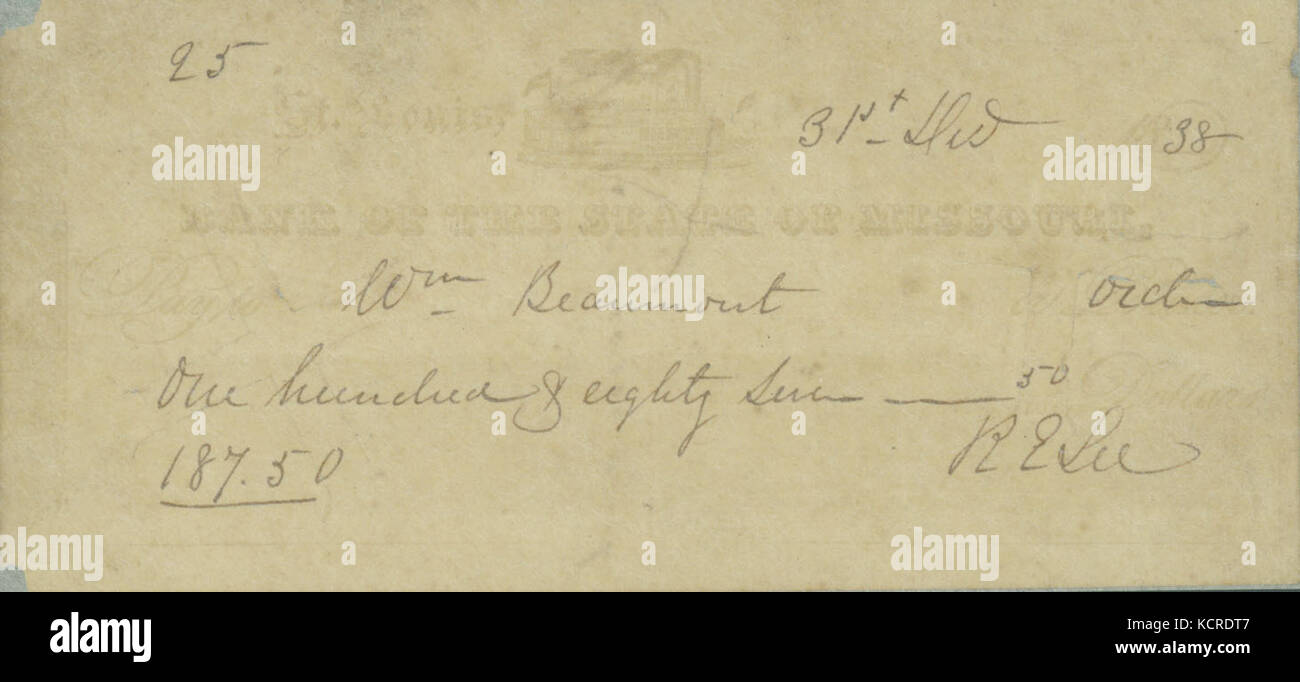 25
St. Louis, 31st Dec 38
BANK OF THE STATE OF MISSOURI.
Pay to Wm Beaumont or order
One hundred & eighty seven — 50 Dollars
187.50 R E Lee
alamy
Image ID: KCRDT7
www.alamy.com